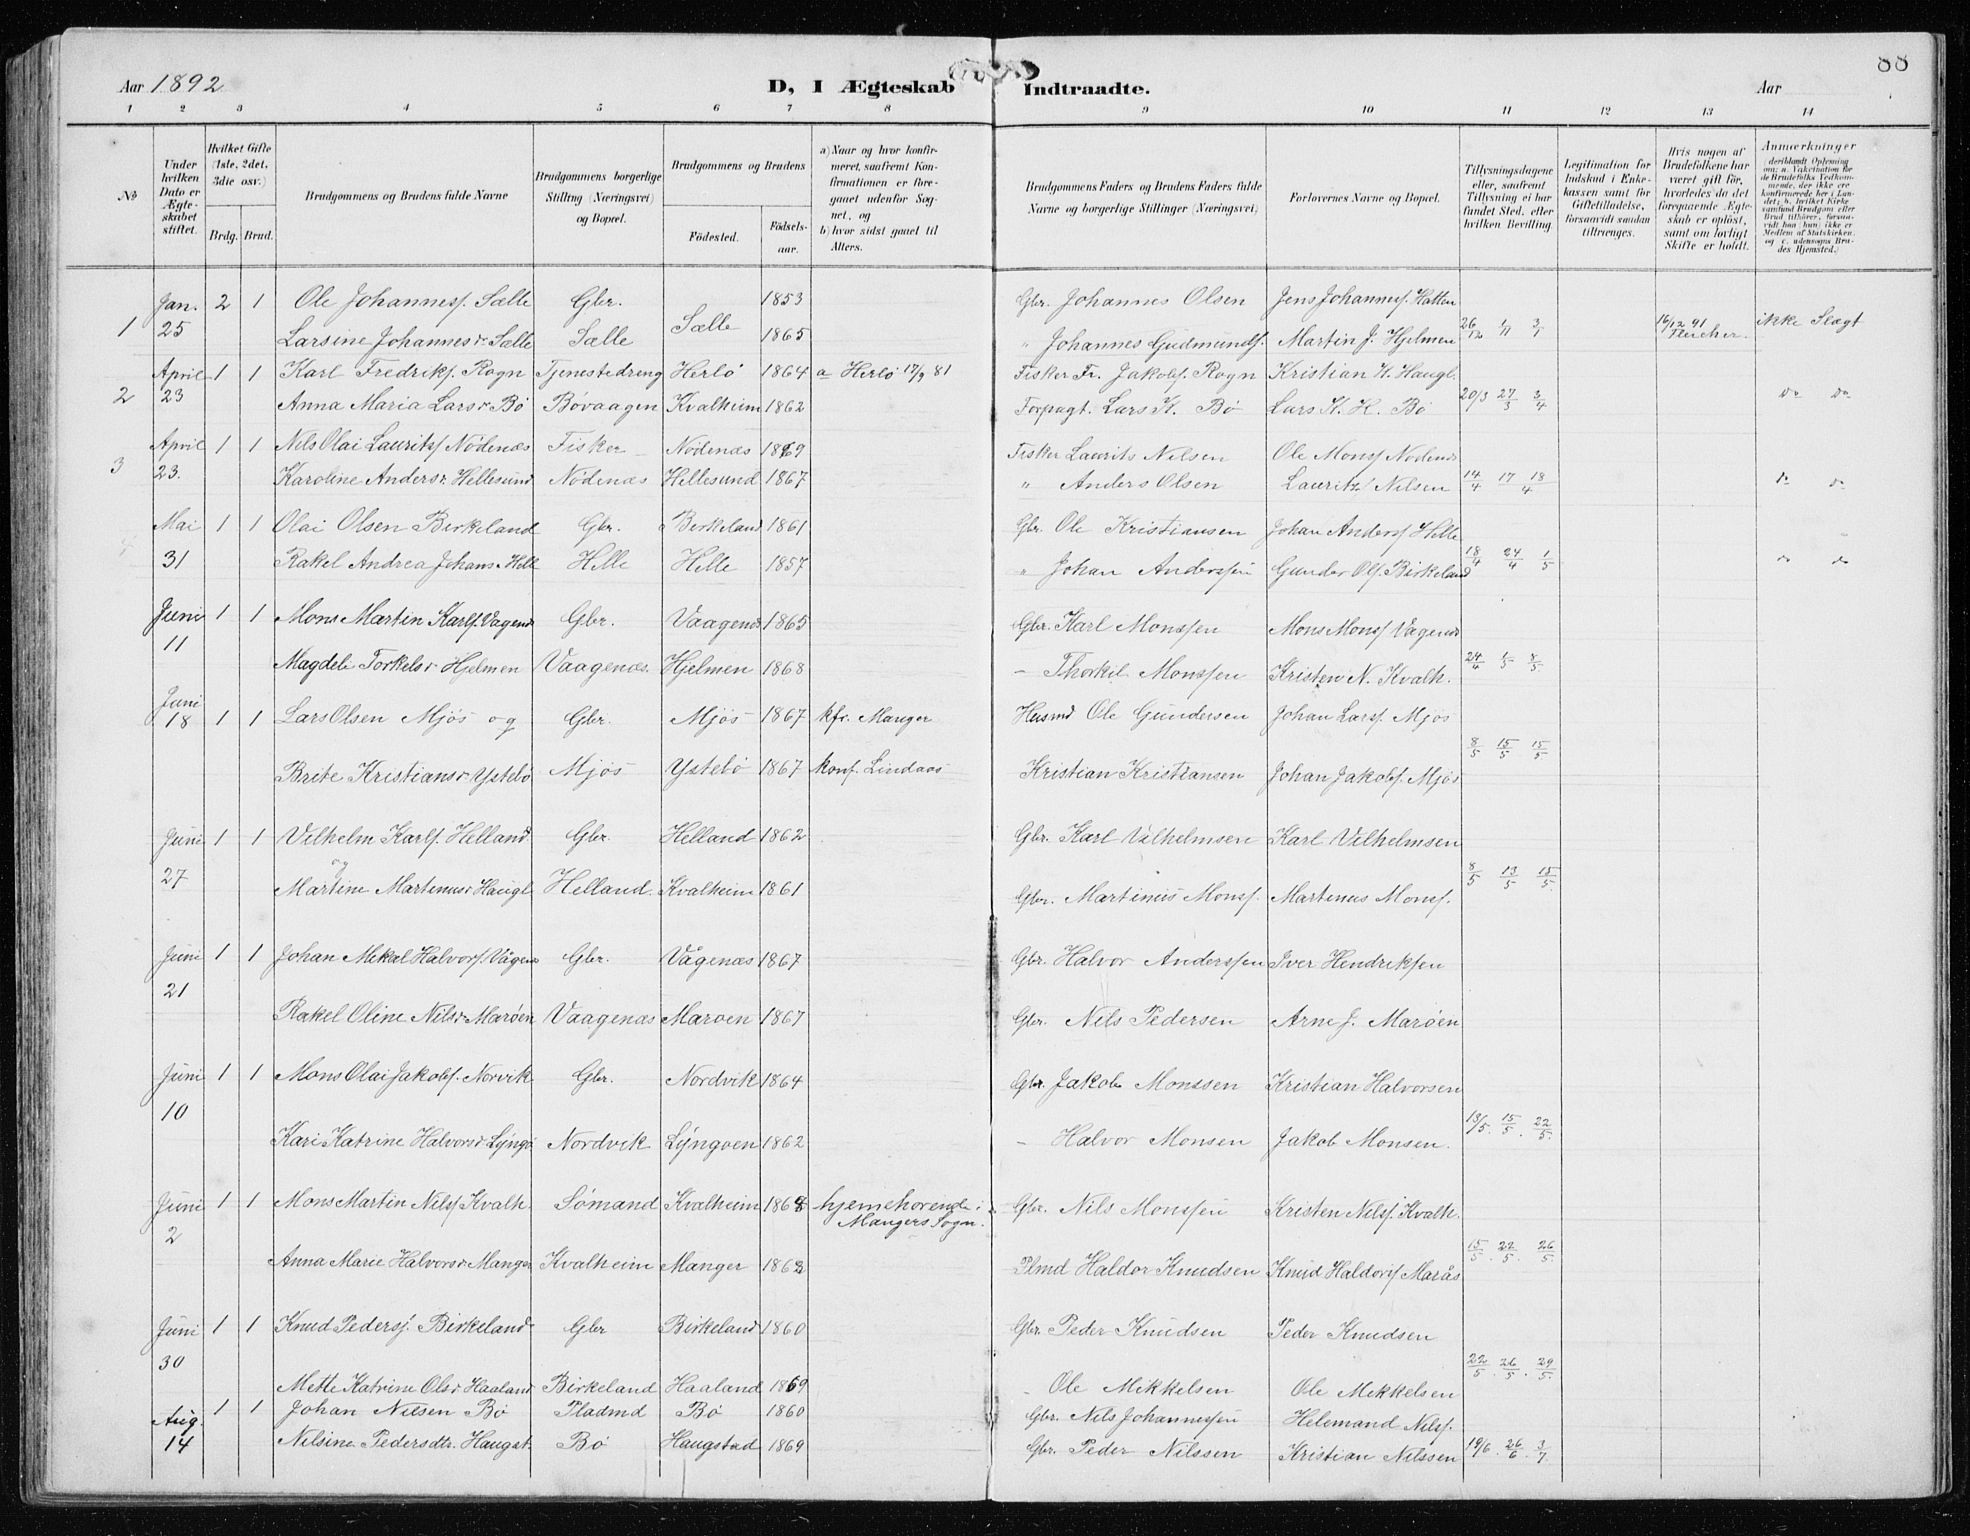 88
Aar 1892 D, I Ægteskab Indtraadte. Aar
1 2 3 4 5 6 7 8 9 10 11 12 13 14
No
Under hvilken Dato er Ægteskabet stiftet.
Hvilket Gifte (1ste, 2det, 3die osv.)
Brdg. Brud.
Brudgommens og Brudens fulde Navne
Brudgommens borgerlige Stilling (Næringsvei) og Bopæl.
Brudgommens og Brudens
Fødested. Fødselsaar.
a) Naar og hvor konfirmeret, saafremt Konfirmationen er foregaaet udenfor Sognet, og
b) hvor sidst gaaet til Alters.
Brudgommens Faders og Brudens Faders fulde Navne og borgerlige Stillinger (Næringsvei)
Forlovernes Navne og Bopæl.
Tillysningsdagene eller, saafremt Tillysning ei har fundet Sted, efter hvilken Bevilling.
Legitimation for Indskud i Enkekassen samt for Giftetilladelse, forsaavidt saadan tiltrænges.
Hvis nogen af Brudefolkene har været gift før, hvorledes da det foregaaende Ægteskab er opløst, samt om lovligt Skifte er holdt.
Anmærkninger
1 Jan. 2 1 Ole Johannesf. Sælle Gbr. 1853 Gbr. Johannes Olsen Jens Johannesf. Hatten
25 Larsine Johannesdr Sælle Sælle Sælle 1865 " Johannes Gudmundf. Martin J. Hjelmen 26/12 1/1 3/1 16/12 91 ikke Slægt
2 April 1 1 Karl Fredrikf. Rogn Tjenestedreng Herlø 1864 a Herlö 17/9 81 Fisker Fr. Jakobf. Rogn Kristian K. Haugl.
23 Anna Maria Larsdr Bø Bøvaagen Kvalheim 1862 Forpagt. Lars K. Bø Lars K. H. Bø 20/3 27/3 3/4 do do
3 April 1 1 Nils Olai Lauritsf Nödenæs Fisker Nödenæs 1869 Fisker Laurits Nilsen Ole Monsf Nödenæs
23. Karoline Andersdr Hellesund Nödenæs Hellesund 1867 " Anders Olsen Lauritz Nilsen 14/4 17 18/4 do do
4 Mai 1 1 Olai Olsen Birkeland Gbr. Birkeland 1861 Gbr. Ole Kristiansen Johan Andersf Helle
31 Rakel Andrea Johansdr Helle Helle Helle 1857 " Johan Anderssen Gunder Olf. Birkeland 18/4 24/4 1/5 do do
Juni 1 1 Mons Martin Karlf. Vagenæs Gbr. Vaagenæs 1865 Gbr. Karl Monssen Mons Monsf Vågenæs
11 Magdeli Torkelsdr Hjelmen Vaagenæs. Hjelmen 1868 - Thorkil Monssen Kristen N. Kvalh. 24/4 1/5 8/5
Juni
18 1 1 Lars Olsen Mjös og Gbr. Mjös 1867 kfr. Manger Husmd Ole Gundersen Johan Larsf. Mjös
Brite Kristiansdr Ystebø Mjös Ystebø 1867 konf. Lindaas Kristian Kristiansen Johan Jakobf. Mjös 8/5 15/5 15/5
Juni 1 1 Vilhelm Karlf. Helland Gbr. Helland 1862 Gbr. Karl Vilhelmsen Karl Vilhelmsen
og
27 Martine Martinusdr Haugl. Helland. Kvalheim 1861 Gbr. Martinus Monsf. Martinus Monsf. 8/5 13/5 15/5
Juni 1 1 Johan Mikal Halvorf. Vågenæs Gbr. Vågenæs 1867 Gbr. Halvor Anderssen Iver Hendriksen
21 Rakel Oline Nilsdr Marøen Vaagenæs Marøen 1867 Gbr. Nils Pedersen Arne J. Marøen
Juni 1 1 Mons Olai Jakobf. Norvik Gbr. Nordvik 1864 Gbr. Jakob Monssen Kristian Halvorsen
10 Kari Katrine Halvorsdr Lyngø Nordvik Lyngøen 1862 - Halvor Monsen Jakob Monsen. 13/5. 15/5. 22/5.
Juni 1 1 Mons Martin Nilsf Kvalh. Sömand Kvalheim 1868 hjemehørende i Mangers Sogn. Gbr. Nils Monssen Kristen Nilsf. Kvalh.
2 Anna Marie Halvorsdr Manger Kvalheim Manger 1862 Plmd Haldor Knudsen Knud Haldorsf Marås 15/5. 22/5. 26/5.
Juni 1 1 Knud Pedersf. Birkeland Gbr Birkeland 1860 Gbr. Peder Knudsen Peder Knudsen
30 Mette Katrine Olsdr Haaland Birkeland Haaland 1869 - Ole Mikkelsen Ole Mikkelsen 22/5. 26/5. 29/5.
Aug. 1 1 Johan Nilsen Bø Pladmd Bø 1860 Gbr. Nils Johannessen Helemand Nilsf.
14 Nilsine Pedersdtr. Haugst. Bø Haugstad 1869 Gbr. Peder Nilssen Kristian Nilssen 19/6. 26/6. 3/7.